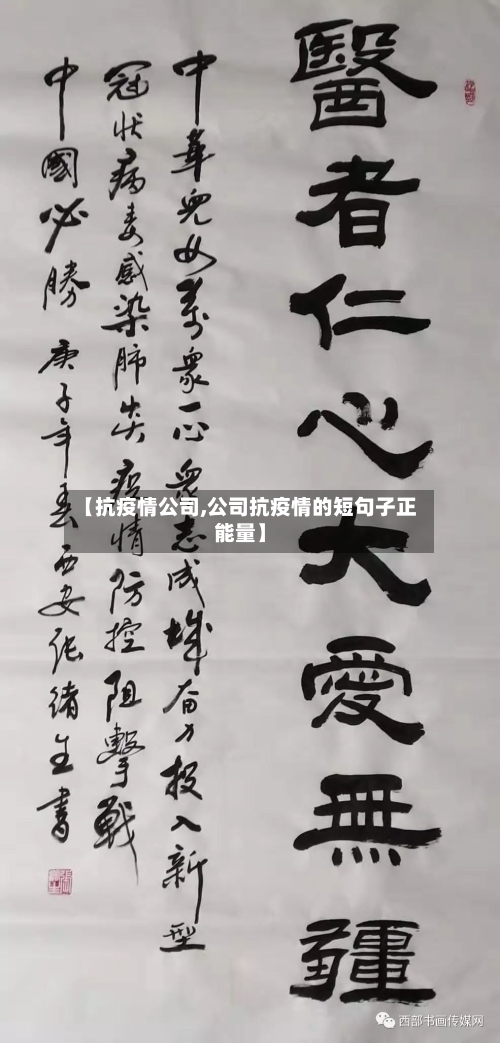 醫者仁心大愛無疆
中華兒女萬衆一心衆志成城奋力投入新型
冠状病毒感染肺炎疫情防控阻擊戰
中國必勝 庚子年春西安张绪生書
【抗疫情公司,公司抗疫情的短句子正
能量】
西部书画传媒网